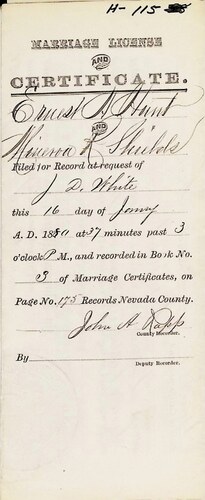 H-115
MARRIAGE LICENSE
AND
CERTIFICATE.
Ernest N Hunt
AND
Minerva H. Shibols
Filed for Record at request of
J D. White
this 16 day of Janry
A. D. 1880 at 37 minutes past 3
o'clock P M., and recorded in Book No.
3 of Marriage Certificates, on
Page No. 175 Records Nevada County.
John A Rapp
County Recorder.
By
Deputy Recorder.